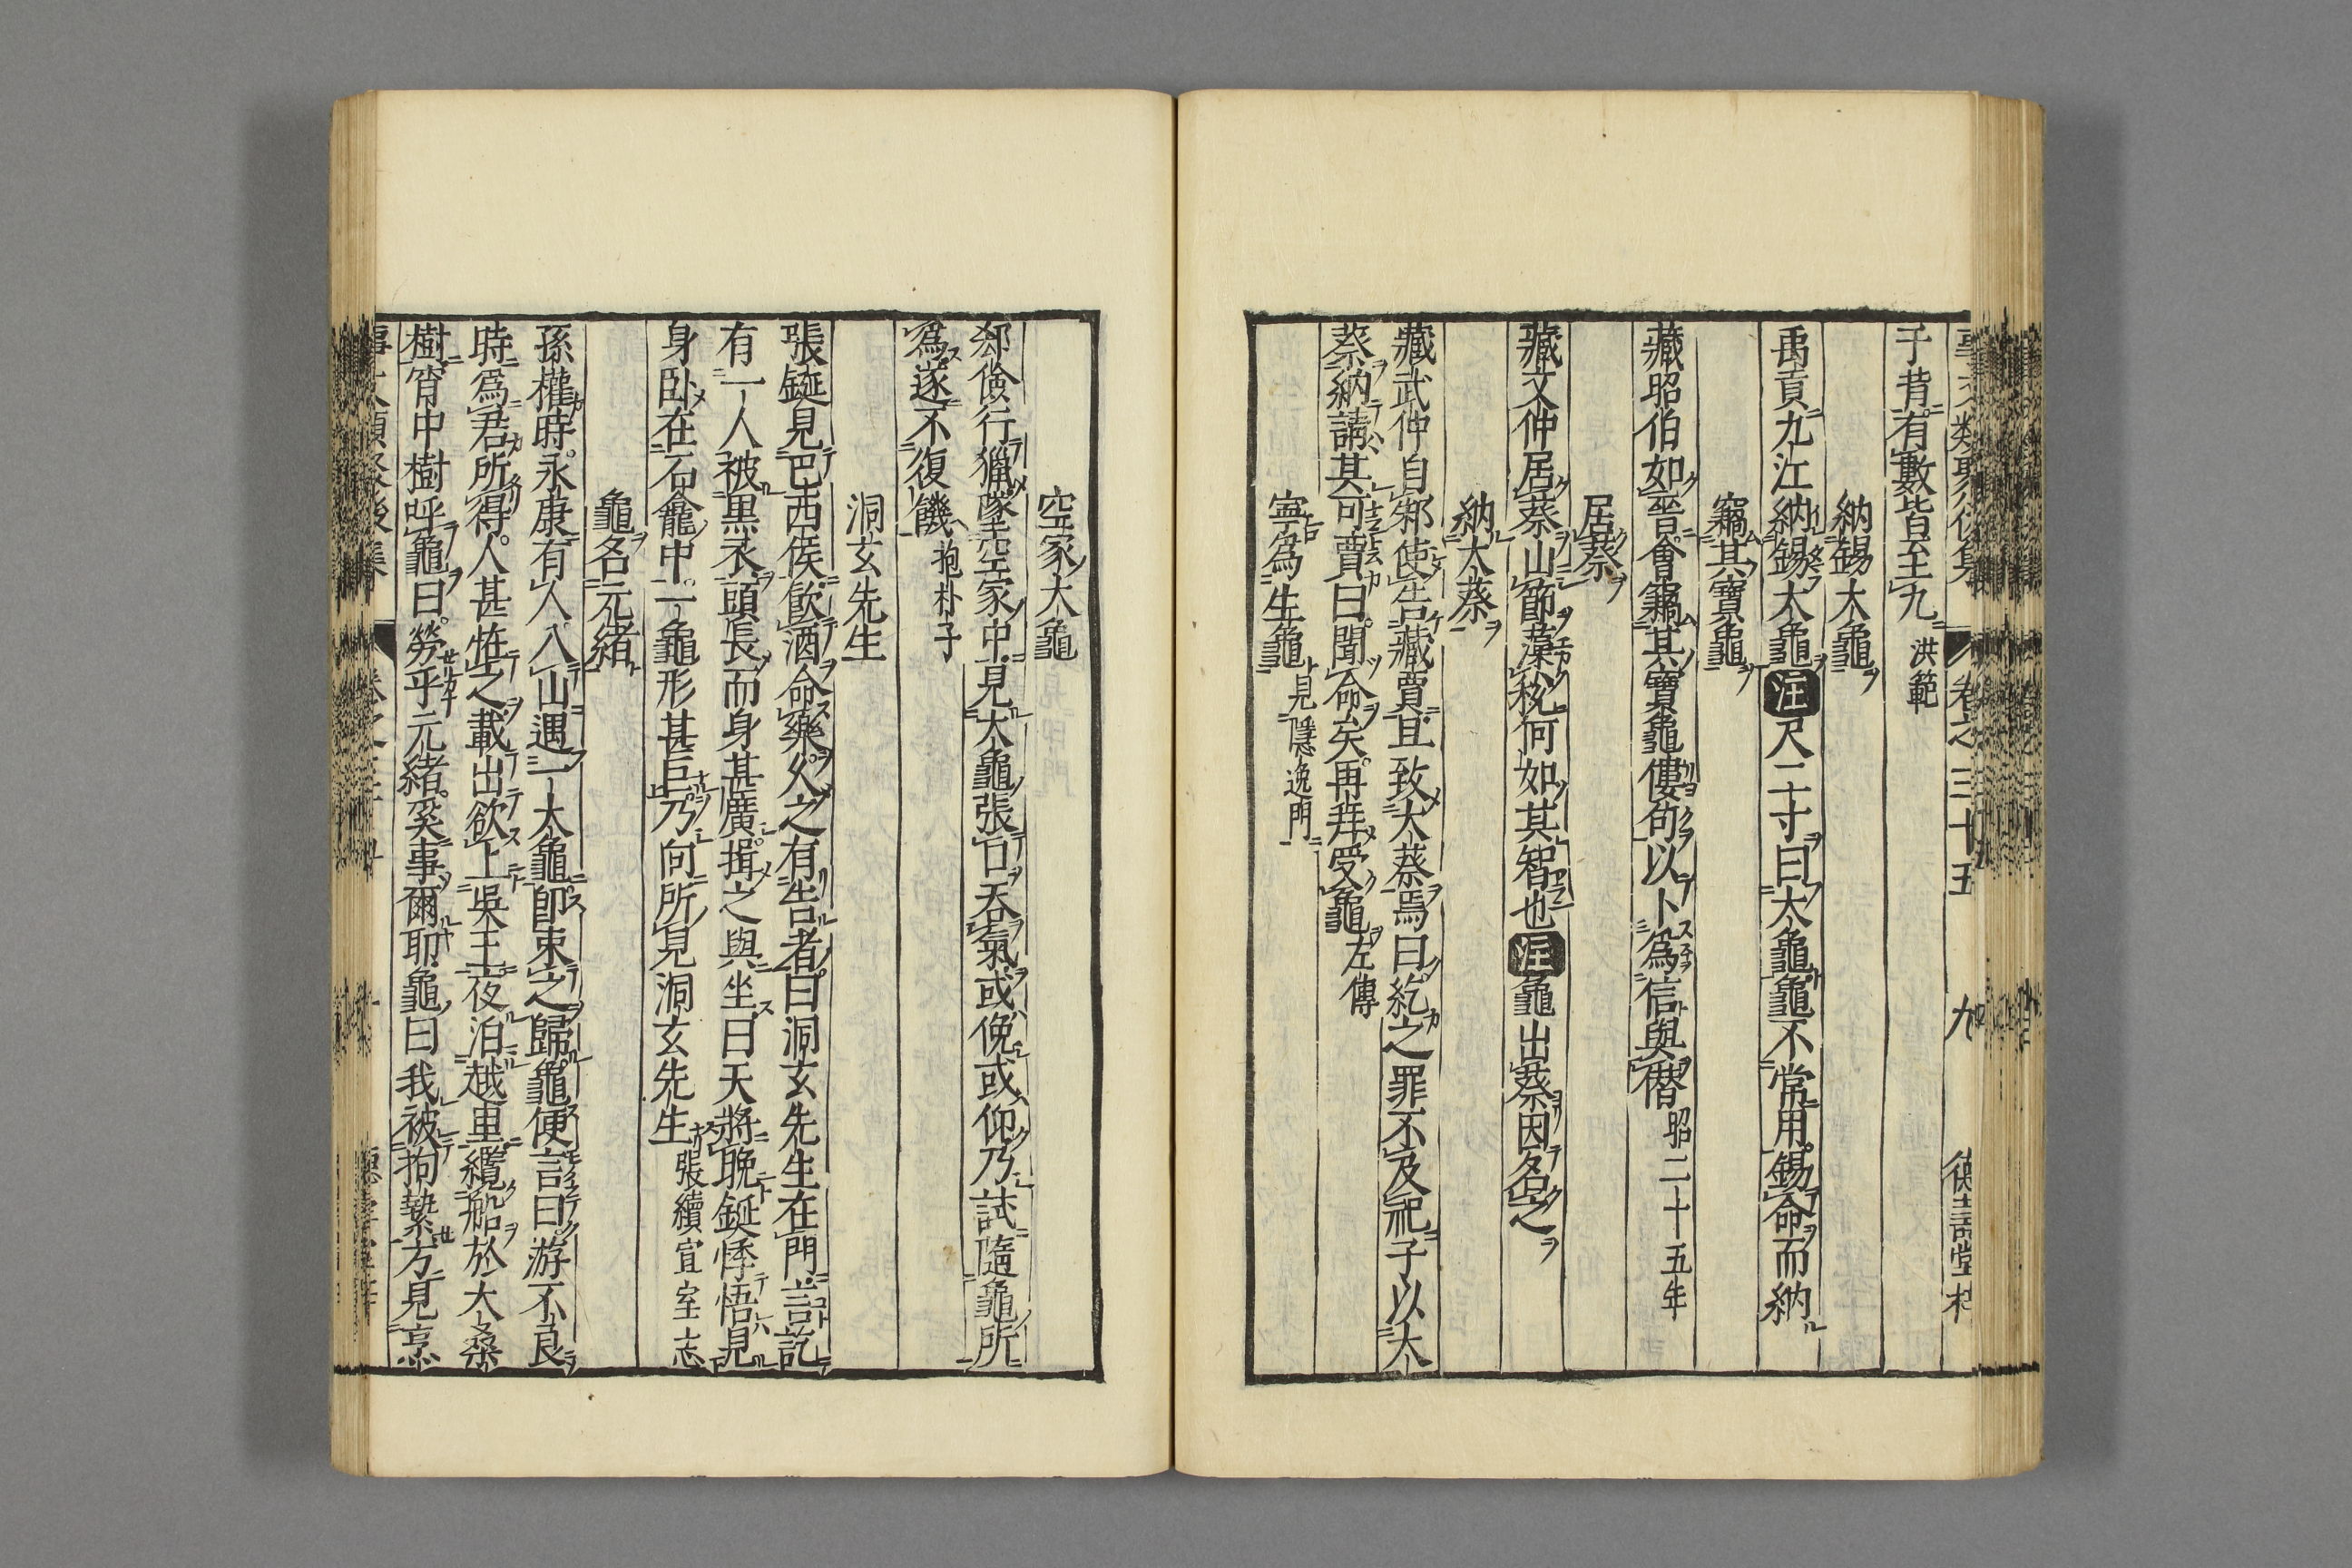 事文類聚後集 卷之三十五 九 德壽堂梓
子背有數皆至九 洪範
納錫大龜
禹貢九江納錫大龜注尺二寸曰大龜龜不常用錫命而納
竊其寶龜
臧昭伯如晉會竊其寶龜僂句以卜爲信與僭 昭二十五年
居蔡
臧文仲居蔡山節藻梲何如其智也注龜出蔡因名之
納大蔡
臧武仲自邾使告臧賈且致大蔡焉曰紇之罪不及祀子以大
蔡納請其可賈曰聞命矣再拜受龜 左傳
寧爲生龜 見隱逸門
空冢大龜
郄儉行獵墜空冢中見大龜張口吞氣或俛或仰乃試隨龜所
爲遂不復饑 抱朴子
洞玄先生
張鋋見巴西侯飮酒命藥久之有告者曰洞玄先生在門言訖
有一人被黑衣頭長而身甚廣揖之與坐曰天將晩鋋悸悟見
身卧在石龕中一龜形甚巨乃向所見洞玄先生 張續宣室志
龜名元緒
孫權時永康有人入山遇一大龜卽束之歸龜便言曰游不良
時爲君所得人甚恠之載出欲上吳王夜泊越里纜船於大桑
樹宵中樹呼龜曰勞乎元緒奚事爾耶龜曰我被拘縶方見烹